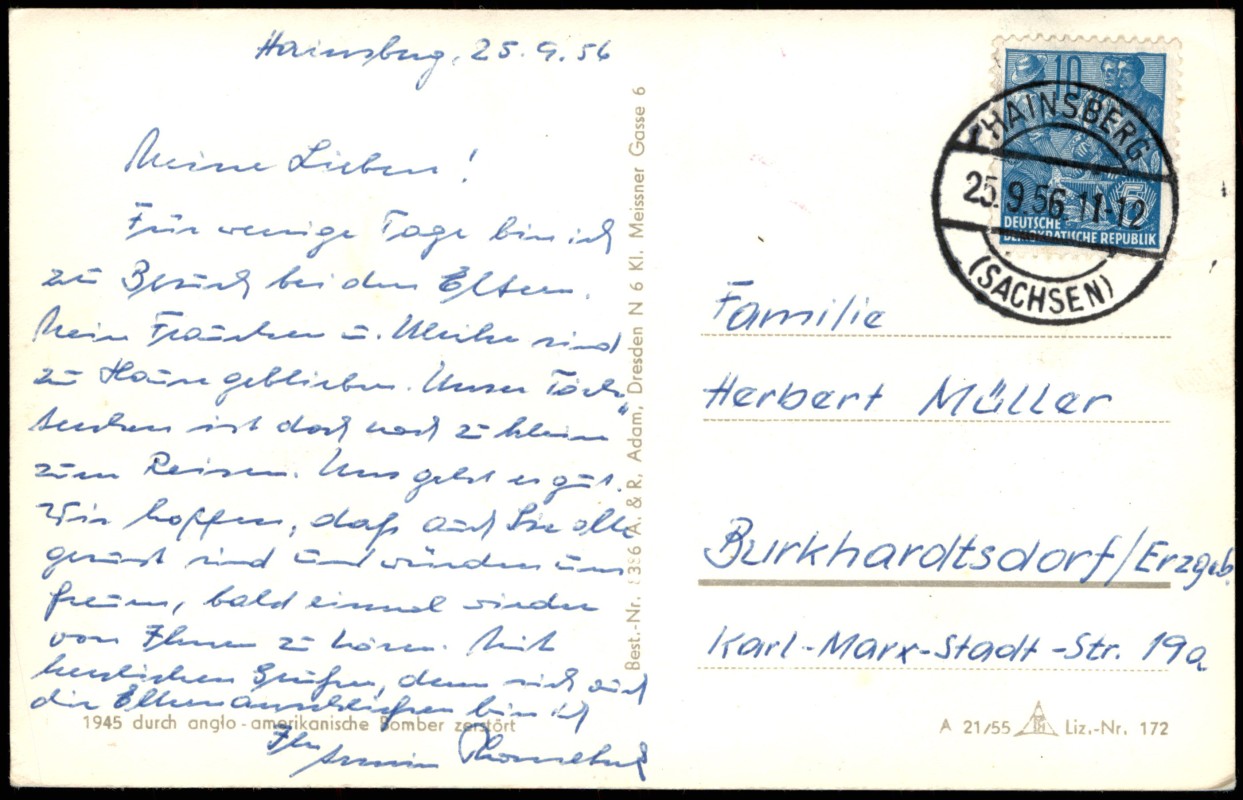 Hainsberg, 25.9.56
Meine Lieben!
Für wenige Tage bin ich
zu Besuch bei den Eltern.
Mein Frauchen u. Ulrike sind
zu Hause geblieben. Unser Töch-
terchen ist doch noch zu klein
zum Reisen. Uns geht es gut.
Wir hoffen, daß auch Sie alle
gesund sind und würden uns
freuen, bald einmal wieder
von Ihnen zu hören. Mit
herzlichen Grüßen, denen sich auch
die Eltern anschließen bin ich
Ihr
Armin
1945 durch anglo-amerikanische Bomber zerstört
Best.-Nr. A. & R. Adam, Dresden N 6 Kl. Meissner Gasse 6
10
DEUTSCHE
DEMOKRATISCHE REPUBLIK
HAINSBERG
25.9.56.11-12
(SACHSEN)
Familie
Herbert Müller
Burkhardtsdorf/Erzgeb.
Karl-Marx-Stadt-Str. 19a
A 21/55 Liz.-Nr. 172